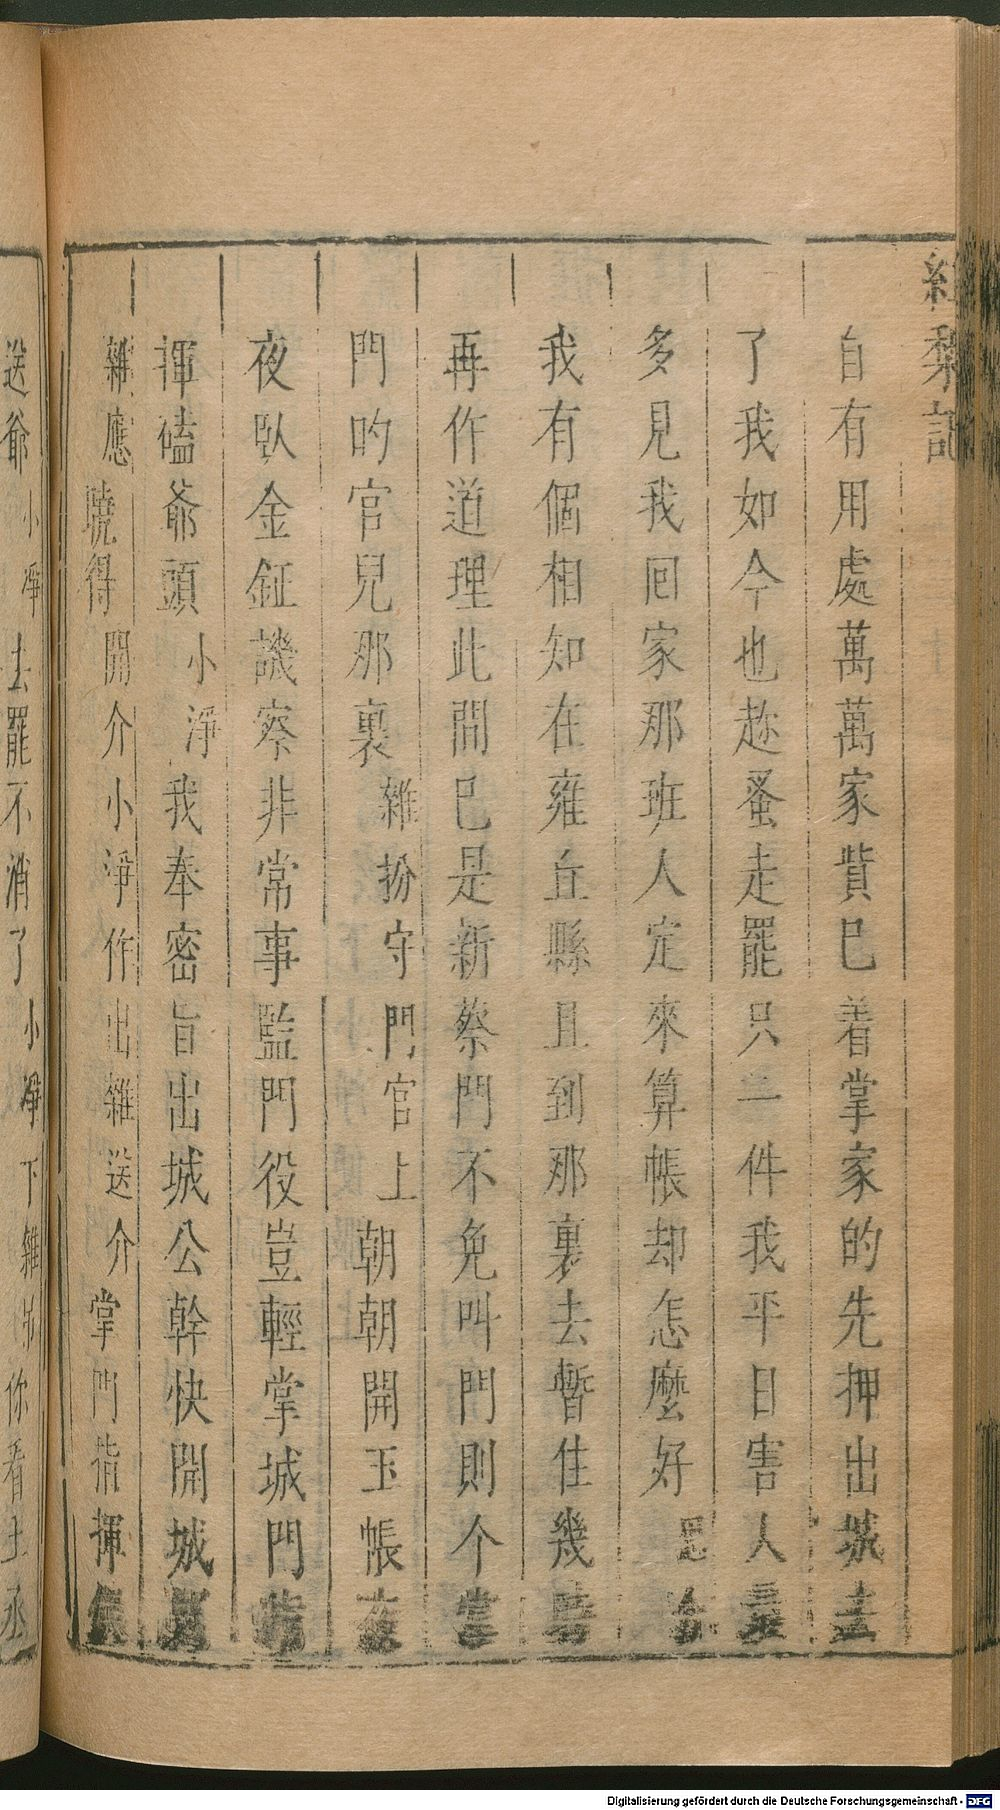 紅梨記
自有用處萬萬家貲已着掌家的先押出城去
了我如今也趂蚤走罷只一件我平日害人最
多見我囘家那班人定來算帳却怎麼好
我有個相知在雍丘縣且到那裏去暫住幾時
再作道理此間已是新蔡門不免叫門則个
門的官兒那裏雜扮守門官上朝朝開玉帳夜
夜臥金鉦譏察非常事監門役豈輕掌城門指
揮磕爺頭小淨我奉密旨出城公幹快開城
雜應曉得開介小淨作出雜送介掌門指揮
送爺小淨去罷不消了小淨下雜你看土
Digitalisierung gefördert durch die Deutsche Forschungsgemeinschaft - DFG